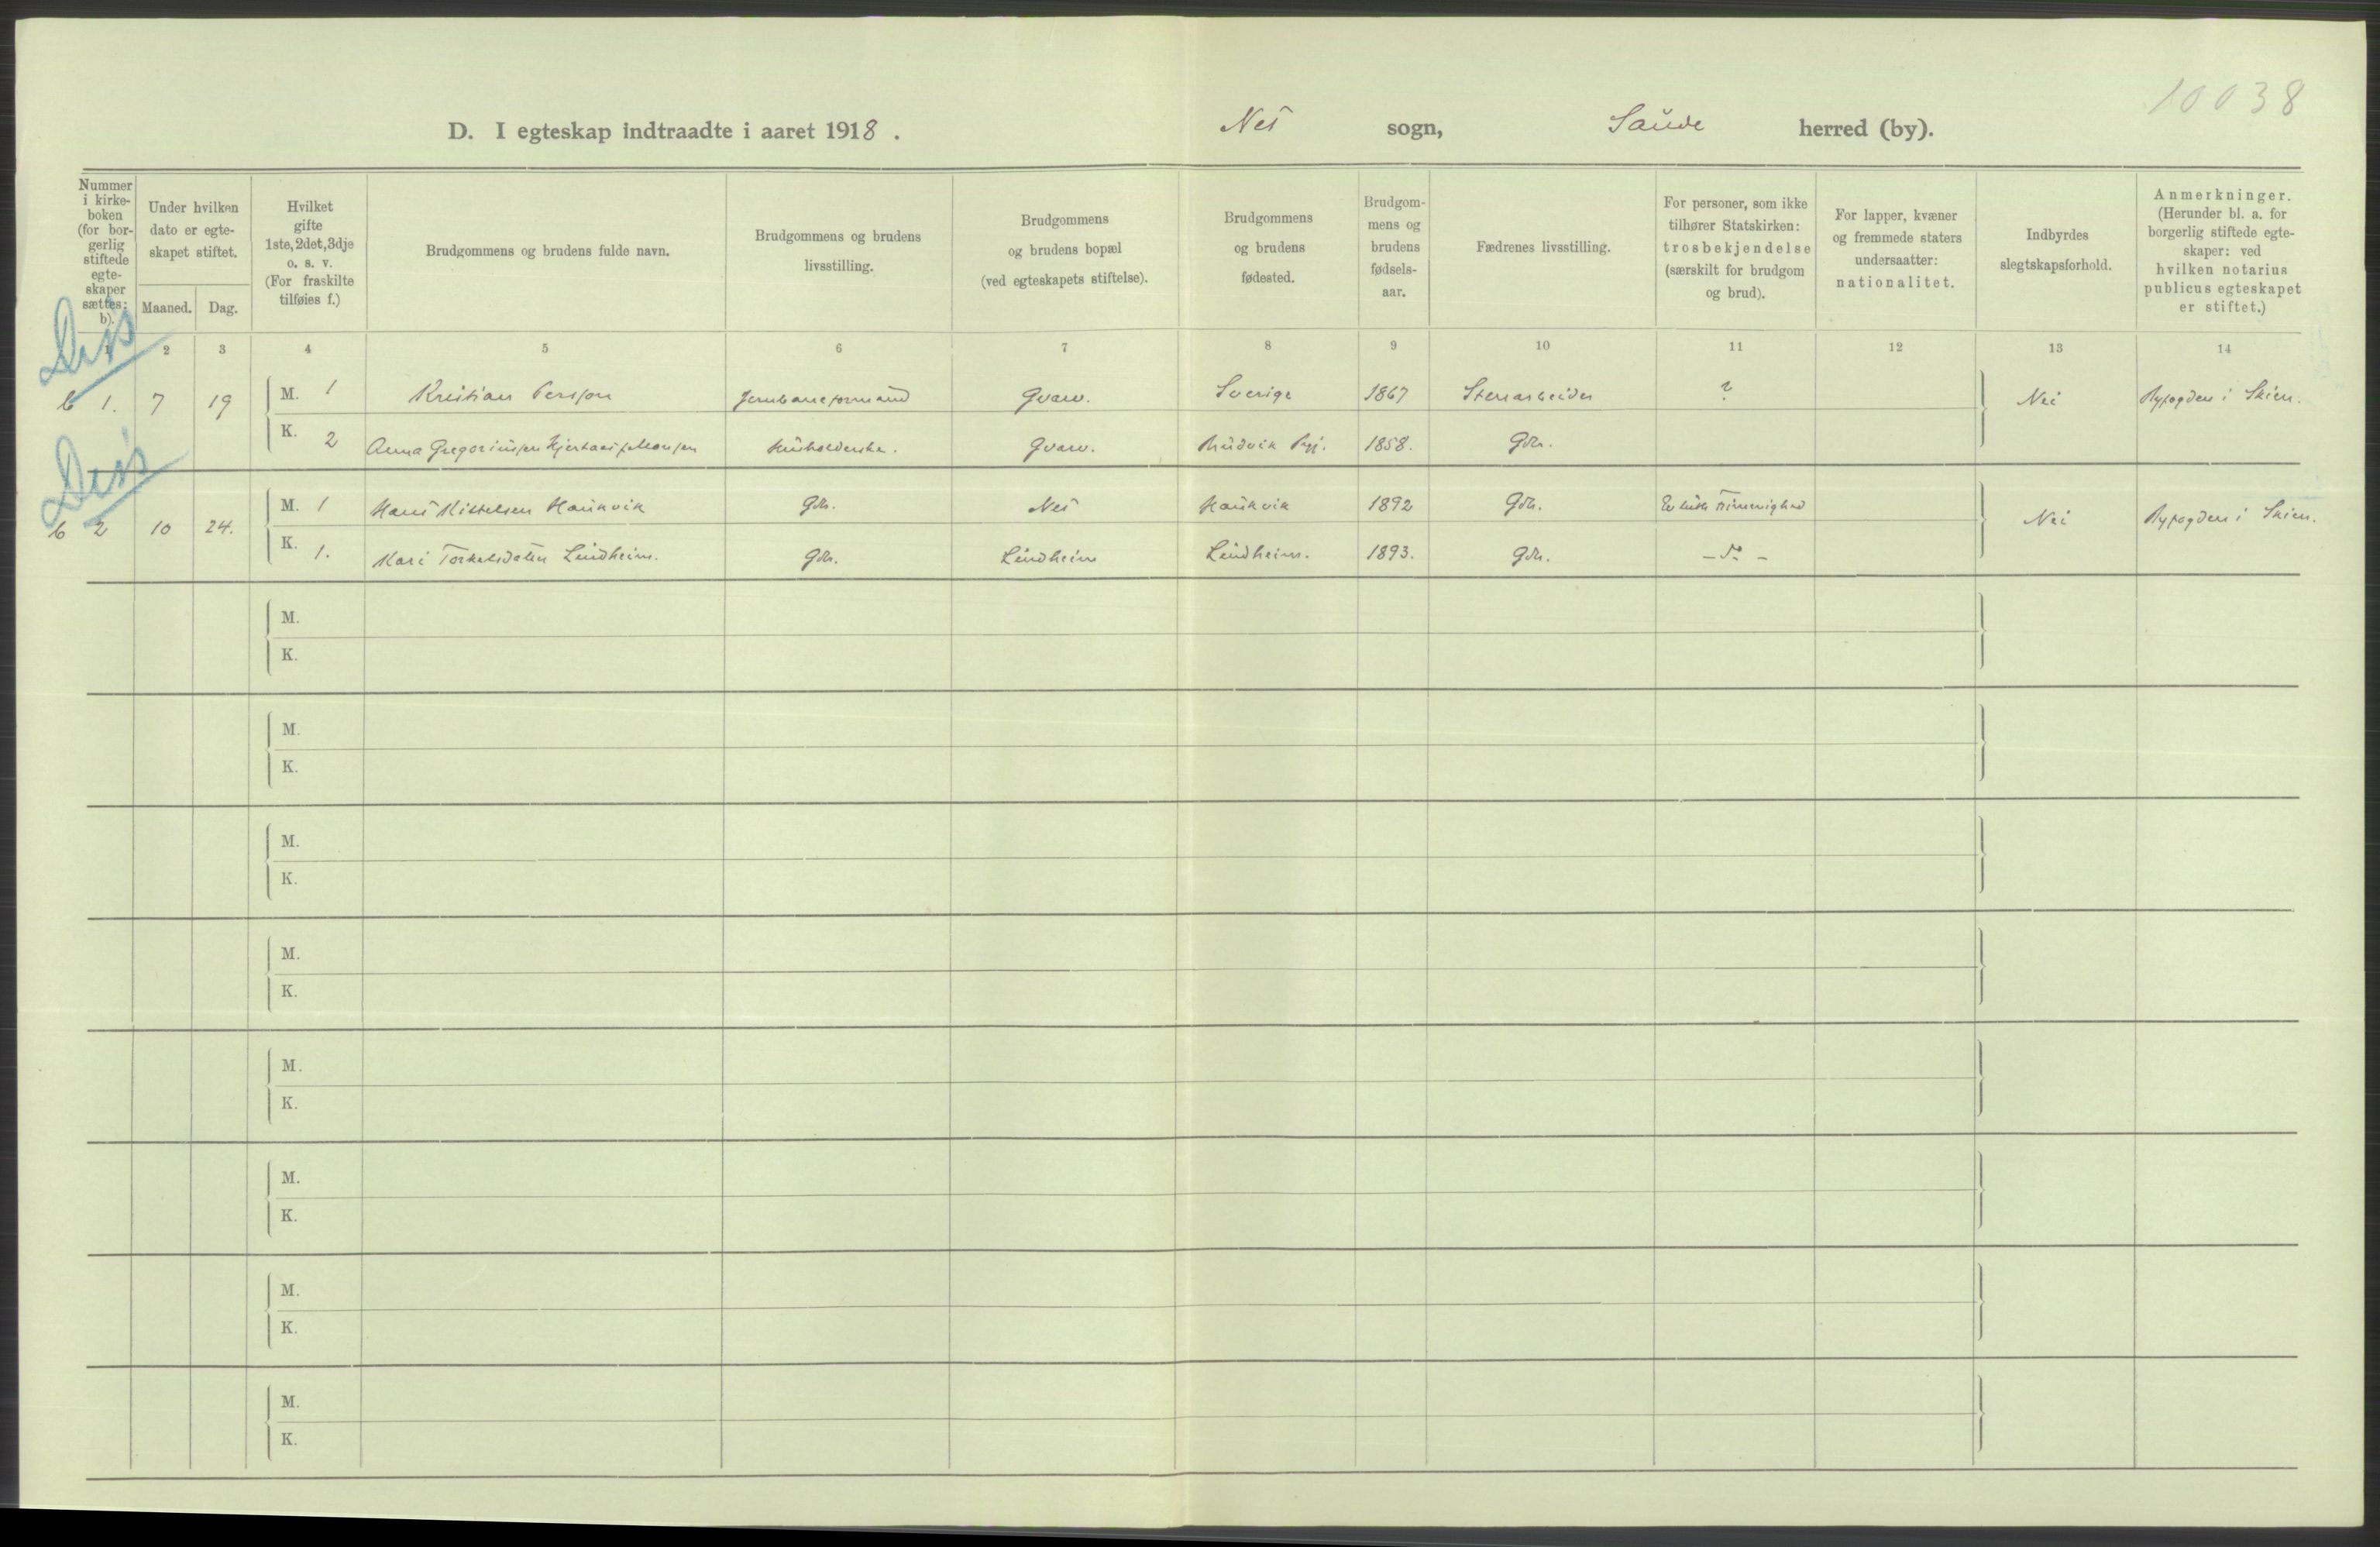 10038
D. I egteskap indtraadte i aaret 1918. Nes sogn, Saude herred (by).
Nummer i kirkeboken (for borgerlig stiftede egteskaper sættes: b).
Under hvilken dato er egteskapet stiftet.
Maaned. Dag.
Hvilket gifte 1ste, 2det, 3dje o. s. v. (For fraskilte tilføies f.)
Brudgommens og brudens fulde navn.
Brudgommens og brudens livsstilling.
Brudgommens og brudens bopæl (ved egteskapets stiftelse).
Brudgommens og brudens fødested.
Brudgommens og brudens fødselsaar.
Fædrenes livsstilling.
For personer, som ikke tilhører Statskirken: trosbekjendelse (særskilt for brudgom og brud).
For lapper, kvæner og fremmede staters undersaatter: nationalitet.
Indbyrdes slegtskapsforhold.
Anmerkninger. (Herunder bl. a. for borgerlig stiftede egteskaper: ved hvilken notarius publicus egteskapet er stiftet.)
1 2 3 4 5 6 7 8 9 10 11 12 13 14
Dis
b 1. 7 19 M. 1 Kristian Persson Jernbaneformand Gvarv. Sverige 1867 Stenarbeider ? Nei Byfogden i Skien.
K. 2 Anna Gregoriussen Gvarv. 1858. Gdr.
Dis
b 2 10 24. M. 1 Hans Kittelsen Haukvik Gdr. Nes Haukvik 1892 Gdr. Ev luth Frimenighed Nei Byfogden i Skien.
K. 1. Kari Torkelsdatter Lindheim. Gdr. Lindheim Lindheim. 1893. Gdr. - do -
M.
K.
M.
K.
M.
K.
M.
K.
M.
K.
M.
K.
M.
K.
M.
K.